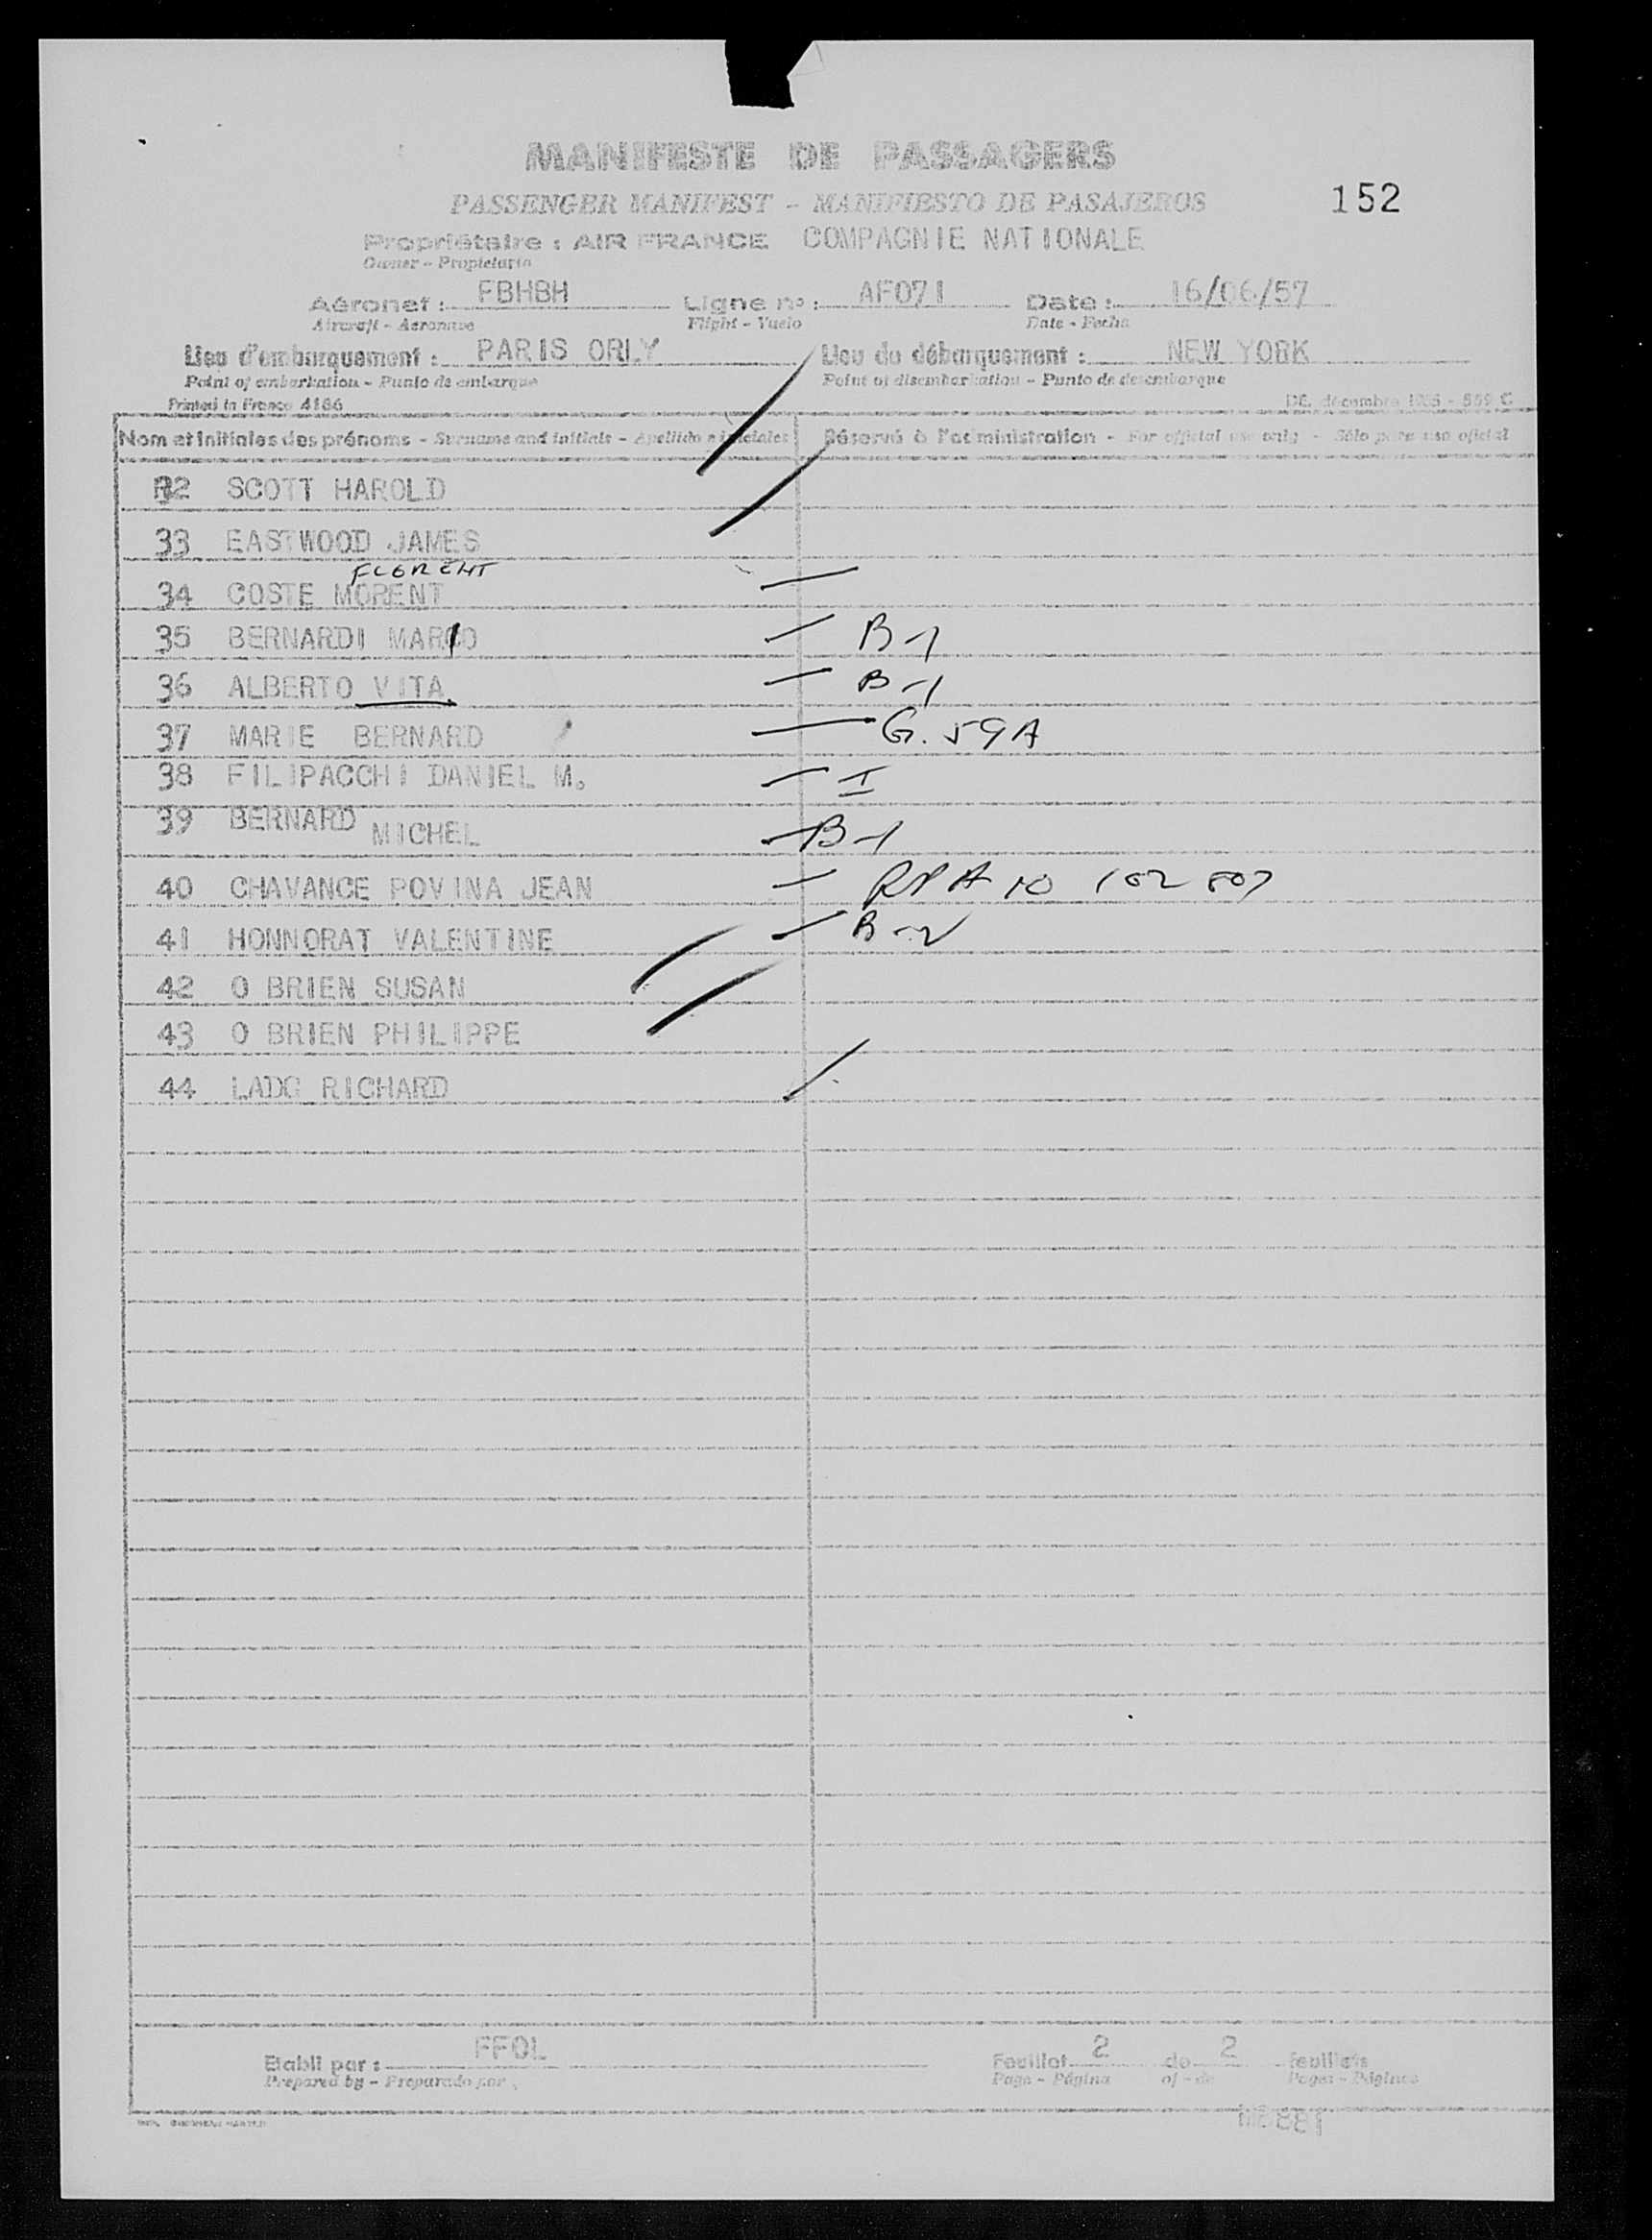 MANIFESTE DE PASSAGERS
PASSENGER MANIFEST - MANIFIESTO DE PASAJEROS
152
Propriétaire : AIR FRANCE COMPAGNIE NATIONALE
Owner - Propietario
Aéronef : FBHBH Ligne nº : AF071 Date : 16/06/57
Aircraft - Aeronave Flight - Vuelo Date - Fecha
Lieu d'embarquement : PARIS ORLY Lieu du débarquement : NEW YORK
Point of embarkation - Punto de embarque Point of disembarkation - Punto de desembarque
Printed in France 4186 DE. décembre
Nom et initiales des prénoms - Surname and initials - Apellido e iniciales Réservé à l'administration - For official use only - Sólo para uso oficial
32 SCOTT HAROLD
33 EASTWOOD JAMES
FLORENT
34 COSTE MORENT
35 BERNARDI MARIO B-1
36 ALBERTO VITA B-1
37 MARIE BERNARD G. 59A
38 FILIPACCHI DANIEL M. I
39 BERNARD MICHEL B-1
40 CHAVANCE POVINA JEAN
41 HONNORAT VALENTINE B-2
42 O BRIEN SUSAN
43 O BRIEN PHILIPPE
44 RICHARD
Etabli par : FFOL Feuillet 2 de 2 feuillets
Prepared by - Preparado por Page - Página of - de Pages - Páginas